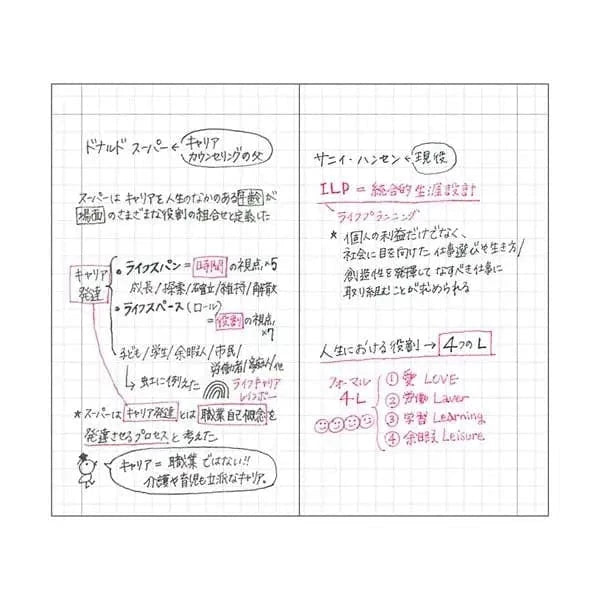 ドナルド スーパー ← キャリア
カウンセリングの父
スーパーは キャリアを人生のなかのある年齢が
場面のさまざまな役割の組合せと定義した
キャリア
発達
• ライフスパン = 時間 の視点 ×5
成長/探索/確立/維持/解放
• ライフスペース (ロール)
= 役割 の視点
×7
子ども/学生/余暇人/市民/
労働者/家庭人/他
↳ 虹に例えた ライフキャリア
レインボー
* スーパーは キャリア発達 とは 職業自己概念 を
発達させるプロセスと考えた
キャリア = 職業 ではない!!
介護や育児も立派なキャリア。
サニィ・ハンセン ← 現役
ILP = 統合的生涯設計
ライフプランニング
* 個人の利益だけでなく、
社会に目を向けた 仕事選びや生き方/
創造性を発揮して なすべき仕事に
取り組むことが求められる
人生における役割 → 4つのL
フォーマル
4-L
① 愛 LOVE
② 労働 Laver
③ 学習 Learning
④ 余暇 Leisure